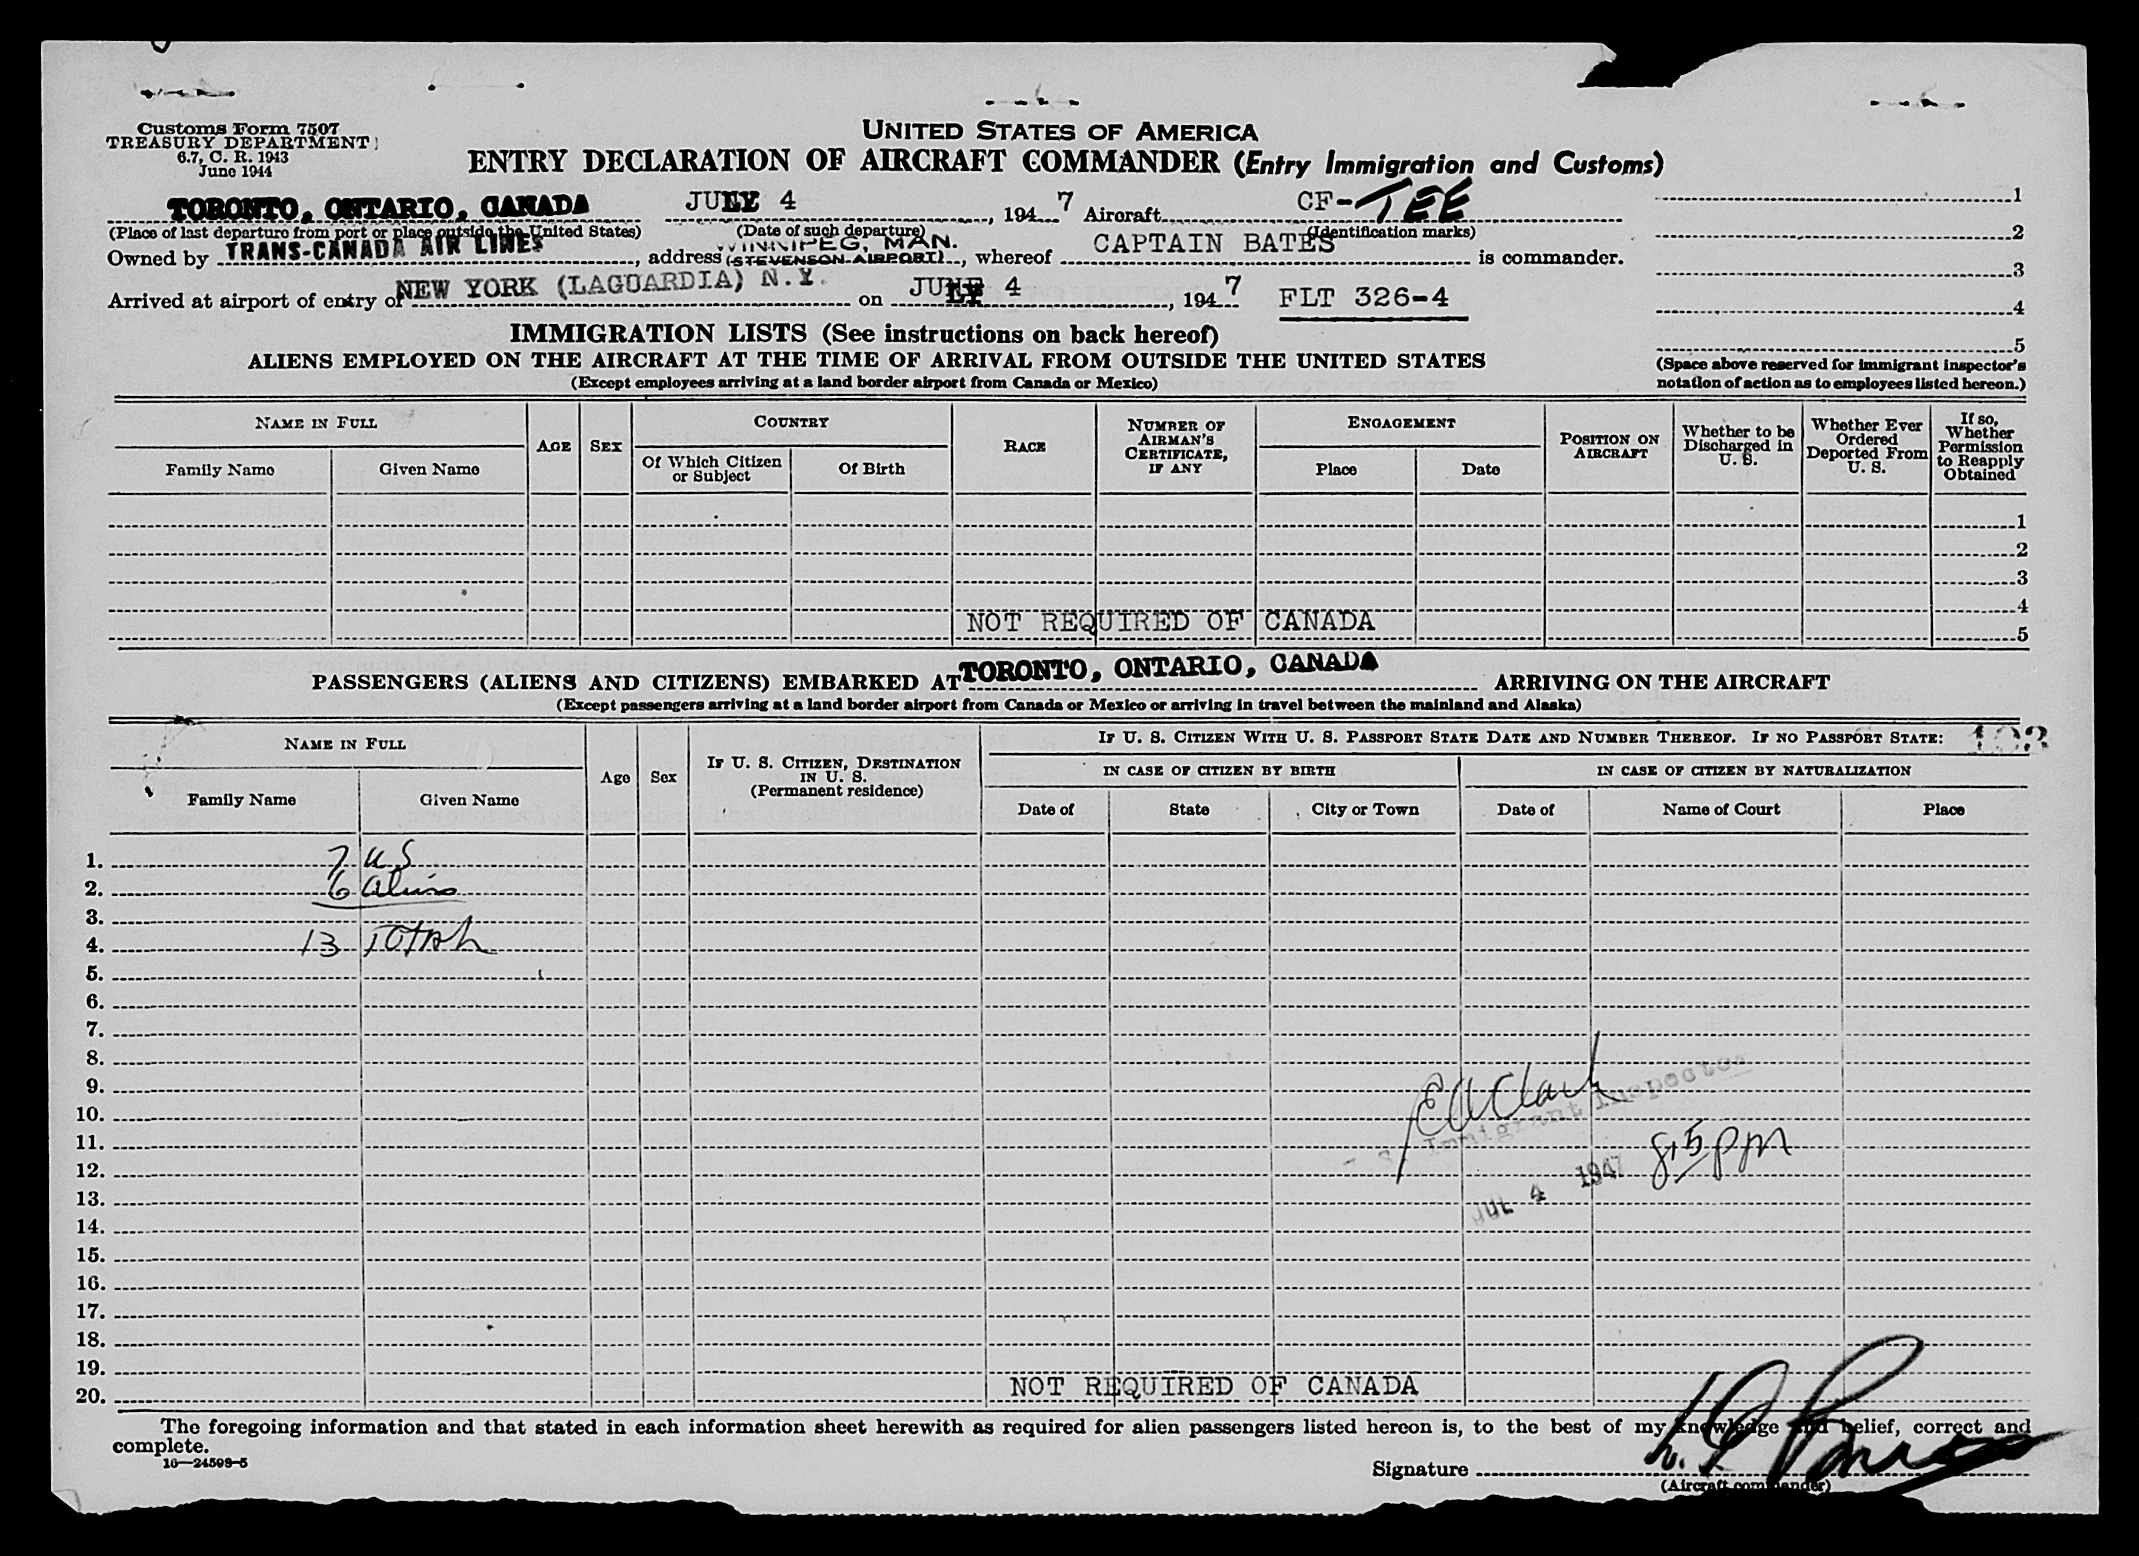 Customs Form 7507
TREASURY DEPARTMENT
6.7, C. R. 1943
June 1944
UNITED STATES OF AMERICA
ENTRY DECLARATION OF AIRCRAFT COMMANDER (Entry Immigration and Customs)
TORONTO, ONTARIO, CANADA JULY 4, 1947 Aircraft CF-TEE
(Place of last departure from port or place outside the United States) (Date of such departure) (Identification marks)
Owned by TRANS-CANADA AIR LINES, address WINNIPEG, MAN. (STEVENSON AIRPORT), whereof CAPTAIN BATES is commander.
Arrived at airport of entry of NEW YORK (LAGUARDIA) N.Y. on JULY 4, 1947 FLT 326-4
1
2
3
4
5
(Space above reserved for immigrant inspector's
notation of action as to employees listed hereon.)
IMMIGRATION LISTS (See instructions on back hereof)
ALIENS EMPLOYED ON THE AIRCRAFT AT THE TIME OF ARRIVAL FROM OUTSIDE THE UNITED STATES
(Except employees arriving at a land border airport from Canada or Mexico)
NAME IN FULL
Family Name Given Name
AGE
SEX
COUNTRY
Of Which Citizen or Subject
Of Birth
RACE
NUMBER OF AIRMAN'S CERTIFICATE, IF ANY
ENGAGEMENT
Place Date
POSITION ON AIRCRAFT
Whether to be Discharged in U. S.
Whether Ever Ordered Deported From U. S.
If so, Whether Permission to Reapply Obtained
1
2
3
4
NOT REQUIRED OF CANADA
5
PASSENGERS (ALIENS AND CITIZENS) EMBARKED AT TORONTO, ONTARIO, CANADA ARRIVING ON THE AIRCRAFT
(Except passengers arriving at a land border airport from Canada or Mexico or arriving in travel between the mainland and Alaska)
NAME IN FULL
Family Name Given Name
Age
Sex
IF U. S. CITIZEN, DESTINATION IN U. S.
(Permanent residence)
IF U. S. CITIZEN WITH U. S. PASSPORT STATE DATE AND NUMBER THEREOF. IF NO PASSPORT STATE:
IN CASE OF CITIZEN BY BIRTH
Date of State City or Town
IN CASE OF CITIZEN BY NATURALIZATION
Date of Name of Court Place
1. 7 US
2. 6 aliens
3.
4. 13 TOTAL
5.
6.
7.
8.
9.
10. E A Clark
11. Immigrant Inspector
12. 815 pm
13. JUL 4 1947
14.
15.
16.
17.
18.
19.
20. NOT REQUIRED OF CANADA
The foregoing information and that stated in each information sheet herewith as required for alien passengers listed hereon is, to the best of my knowledge and belief, correct and
complete.
16—24598-5
Signature
(Aircraft commander)